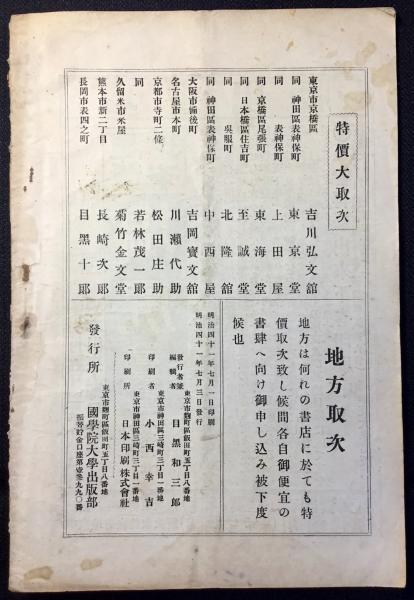 特價大取次
東京市京橋區 吉川弘文館
同 神田區表神保町 東京堂
同 表神保町 上田屋
同 京橋區尾張町 東海堂
同 日本橋區住吉町 至誠堂
同 吳服町 北隆館
同 神田區表神保町 中西屋
大阪市備後町 吉岡寳文館
名古屋市本町 川瀨代助
京都市寺町二條 松田庄助
同 若林茂一郎
久留米市米屋 菊竹金文堂
熊本市新二丁目 長崎次郎
長岡市表四之町 目黑十郎
地方取次
地方は何れの書店に於ても特
價取次致し候間各自御便宜の
書肆へ向け御申し込み被下度
候也
明治四十一年七月一日印刷
明治四十一年七月三日發行
東京市麴町區飯田町五丁目八番地
發行者兼編輯者 目黑和三郎
東京市神田區三崎町三丁目一番地
印刷者 小西幸吉
東京市神田區三崎町三丁目一番地
印刷所 日本印刷株式會社
東京市麴町區飯田町五丁目八番地
發行所 國學院大學出版部
振替貯金口座第壹參九九〇番